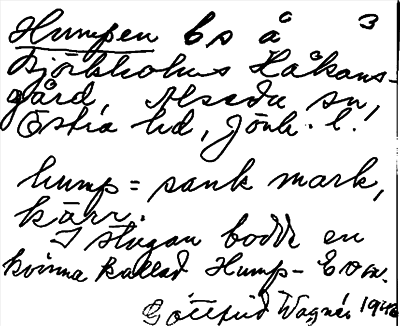 Humpen bs å 3
Björkholms Håkans-
gård, Alseda sn,
Östra hd, Jönk. l.
hump = sank mark,
kärr.
I stugan bodde en
kvinna kallad Hump-Eva.
Gottfrid Wagnér 1946